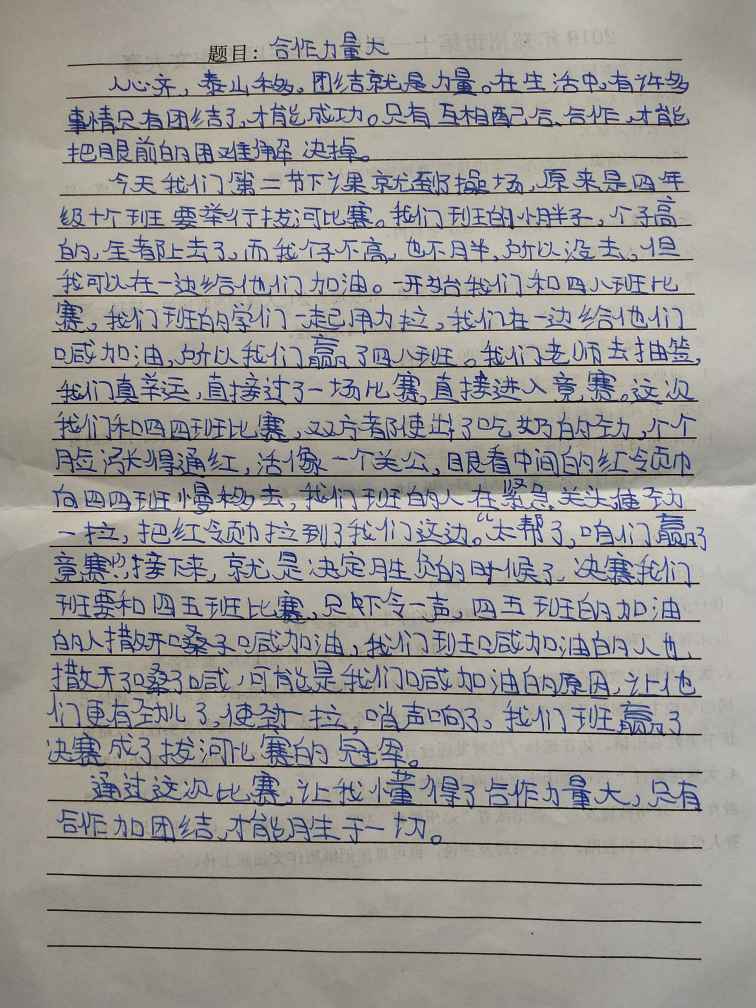 题目：合作力量大
人心齐，泰山移。团结就是力量。在生活中，有许多
事情只有团结了，才能成功。只有互相配合、合作，才能
把眼前的困难解决掉。
今天我们第二节下课就到了操场，原来是四年
级十个班要举行拔河比赛。我们班的小胖子，个子高
的，全都上去了，而我个子不高，也不胖，所以没去，但
我可以在一边给他们加油。一开始我们和四八班比
赛，我们班的学们一起用力拉，我们在一边给他们
喊加油，所以我们赢了四八班。我们老师去抽签，
我们真幸运，直接过了一场比赛，直接进入竞赛。这次
我们和四四班比赛，双方都使出了吃奶的劲，个个
脸涨得通红，活像一个关公，眼看中间的红领巾
向四四班慢移去，我们班的人在紧急关头使劲
一拉，把红领巾拉到了我们这边。“太帮了，咱们赢了
竟赛”，接下来，就是决定胜负的时候了，决赛我们
班要和四五班比赛，只听令一声，四五班的加油
的人撒开嗓子喊加油，我们班喊加油的人也
撒开了嗓子喊，可能是我们喊加油的原因，让他
们更有劲儿了，使劲一拉，哨声响了，我们班赢了
决赛成了拔河比赛的冠军。
通过这次比赛，让我懂得了合作力量大，只有
合作加团结，才能胜于一切。